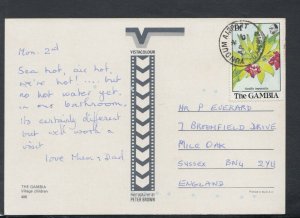 Mon. 2nd
Sea hot, air hot,
we're hot!... but
no hot water yet in
our bathroom.
Its certainly different
but well worth a
visit
love Mum & Dad
THE GAMBIA
Village children
VISTACOLOUR
PHOTOGRAPHY BY
PETER BROWN
YUNDUM AIRPORT
The GAMBIA
MR P EVERARD
7 BROOMFIELD DRIVE
MILE OAK
SUSSEX BN4 2YH
ENGLAND